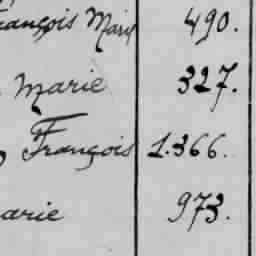 François Marie 490.
Marie 327.
François 1.366.
arie 973.